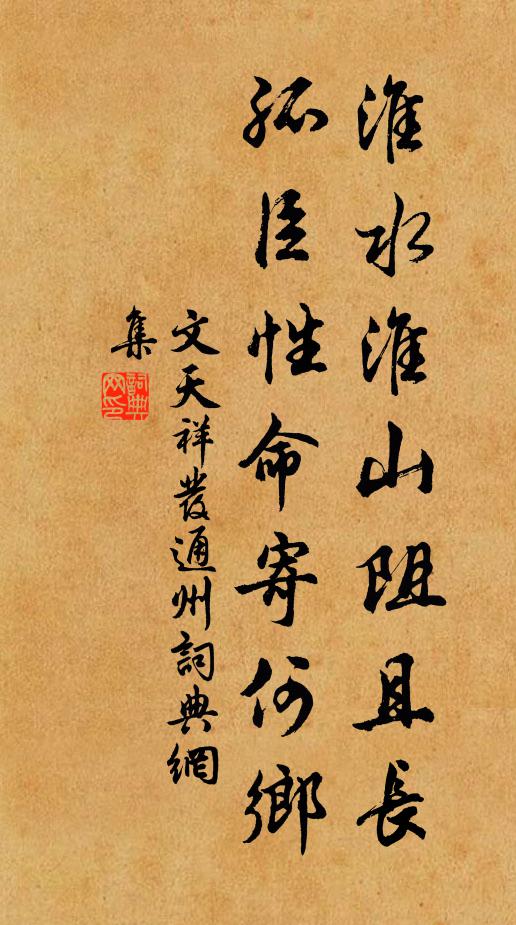 淮水淮山阻且長
孤臣性命寄何鄉
文天祥發通州詞典網
集
詞典網印